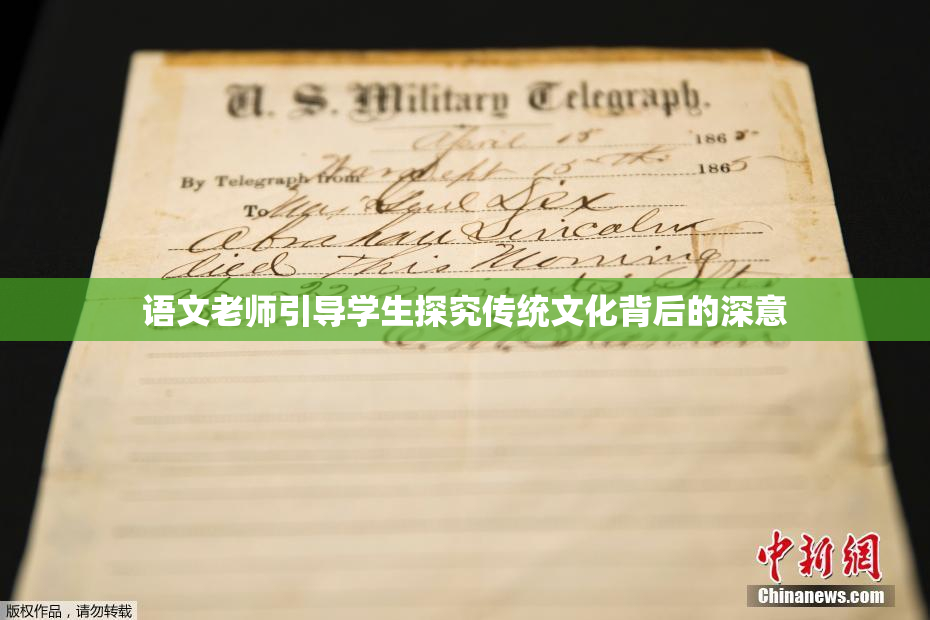 U. S. Military Telegraph.
April 15 1865
By Telegraph from War Dept 15th 1865
To Maj Genl Dix
Abraham Lincoln
died this Morning
22 minutes after
语文老师引导学生探究传统文化背后的深意
E. M. Stanton
中新网
Chinanews.com
版权作品，请勿转载